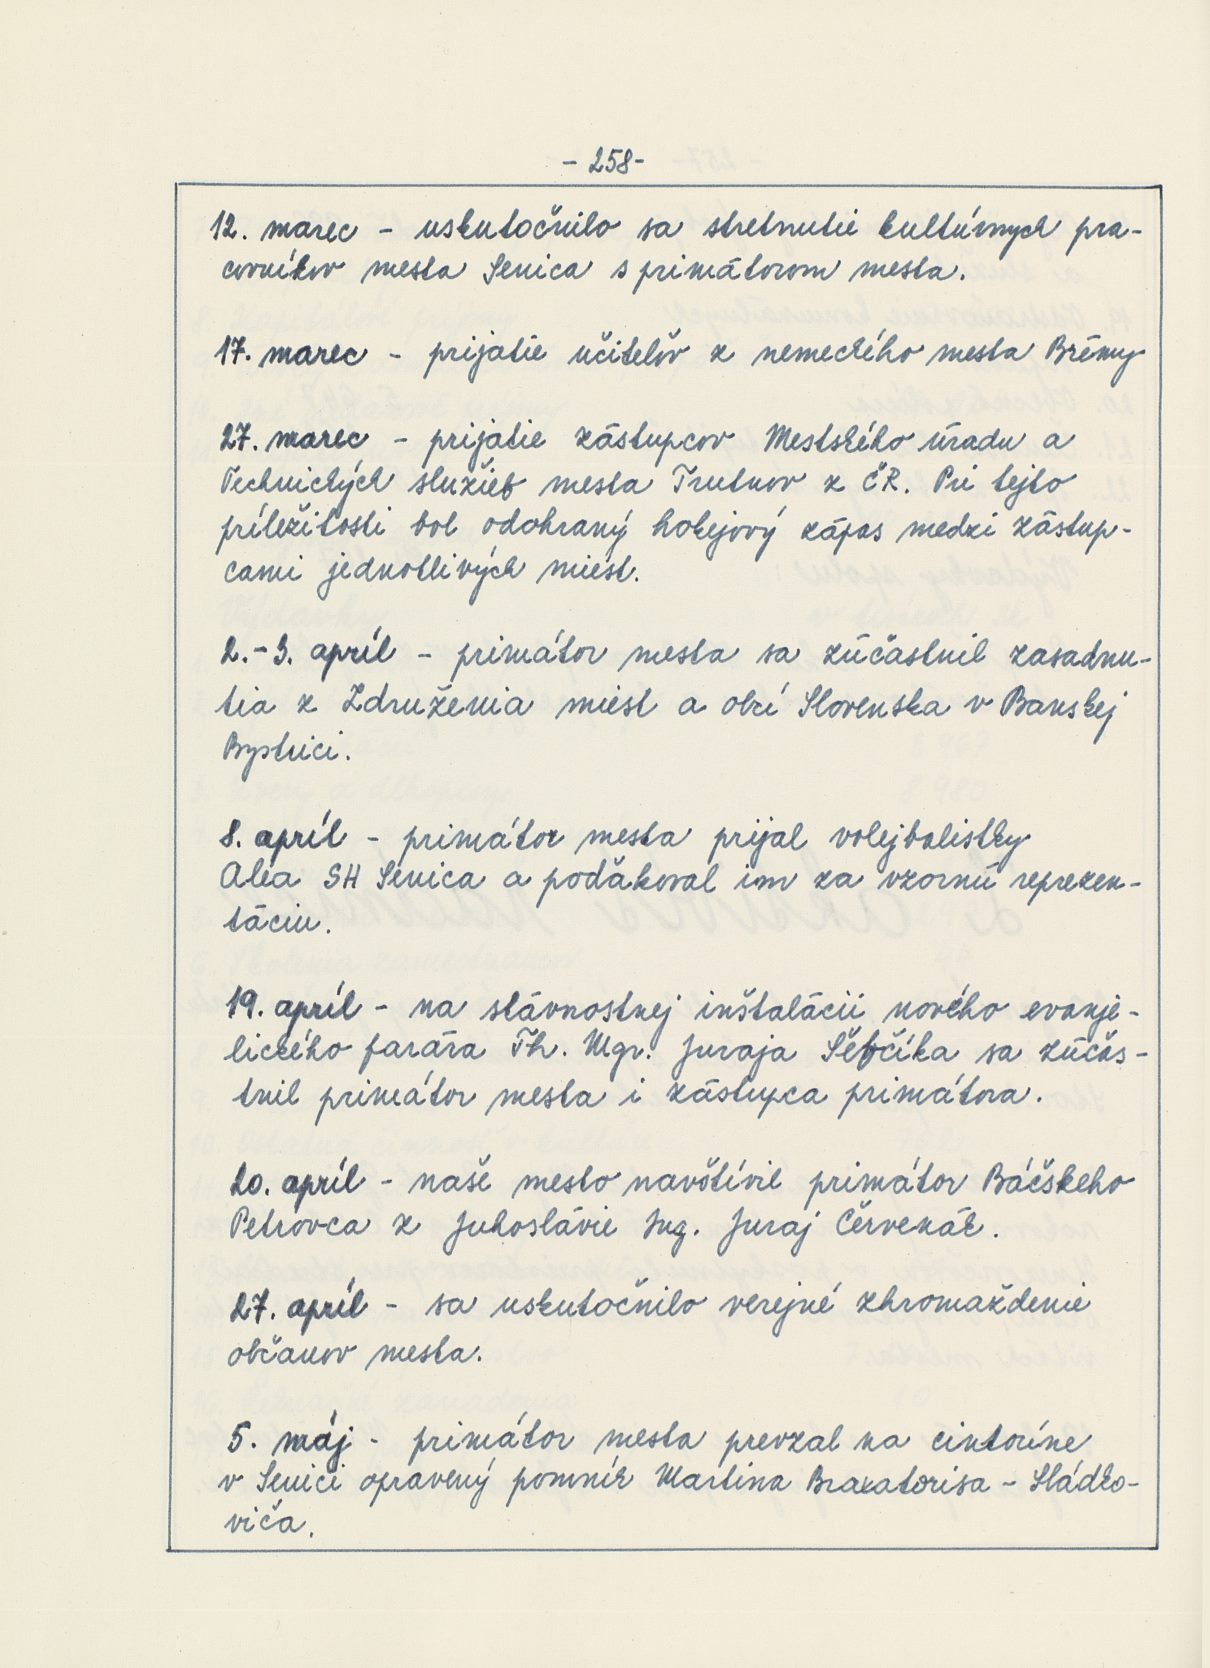 - 258 -
12. marec - uskutočnilo sa stretnutie kultúrnych pra-
covníkov mesta Senica s primátorom mesta.
17. marec - prijatie učiteľov z nemeckého mesta Brémy
27. marec - prijatie zástupcov Mestského úradu a
Technických služieb mesta Trutnov z ČR. Pri tejto
príležitosti bol odohraný hokejový zápas medzi zástup-
cami jednotlivých miest.
2.-3. apríl - primátor mesta sa zúčastnil zasadnu-
tia z Združenia miest a obcí Slovenska v Banskej
Bystrici.
8. apríl - primátor mesta prijal volejbalistky
Alea SH Senica a poďakoval im za vzornú reprezen-
táciu.
19. apríl - na slávnostnej inštalácii nového evanje-
lického farára Th. Mgr. Juraja Šefčíka sa zúčas-
tnil primátor mesta i zástupca primátora.
20. apríl - naše mesto navštívil primátor Báčskeho
Petrovca z Juhoslávie Ing. Juraj Červenák.
27. apríl - sa uskutočnilo verejné zhromaždenie
občanov mesta.
5. máj - primátor mesta prevzal na cintoríne
v Senici opravený pomník Martina Braxatorisa - Sládko-
viča.